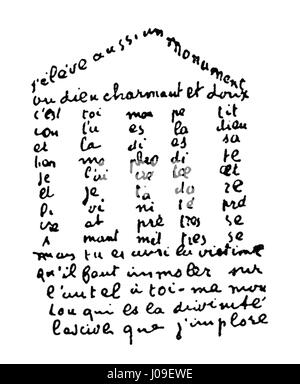 s'élève aussi un monument
ou dieu charmant et doux
c'est toi mon pe tit
lou tu es la dieu
et la di es sa
je l'ai cre ée et
et je ta do re
Di vi ni té pré
et pré tres se
A mant tres se
mais tu es aussi la victime
qu'il faut immoler sur
l'autel à toi-ma mon
Lou qui es la divinité
lascive que j'implore
alamy
J09EWE